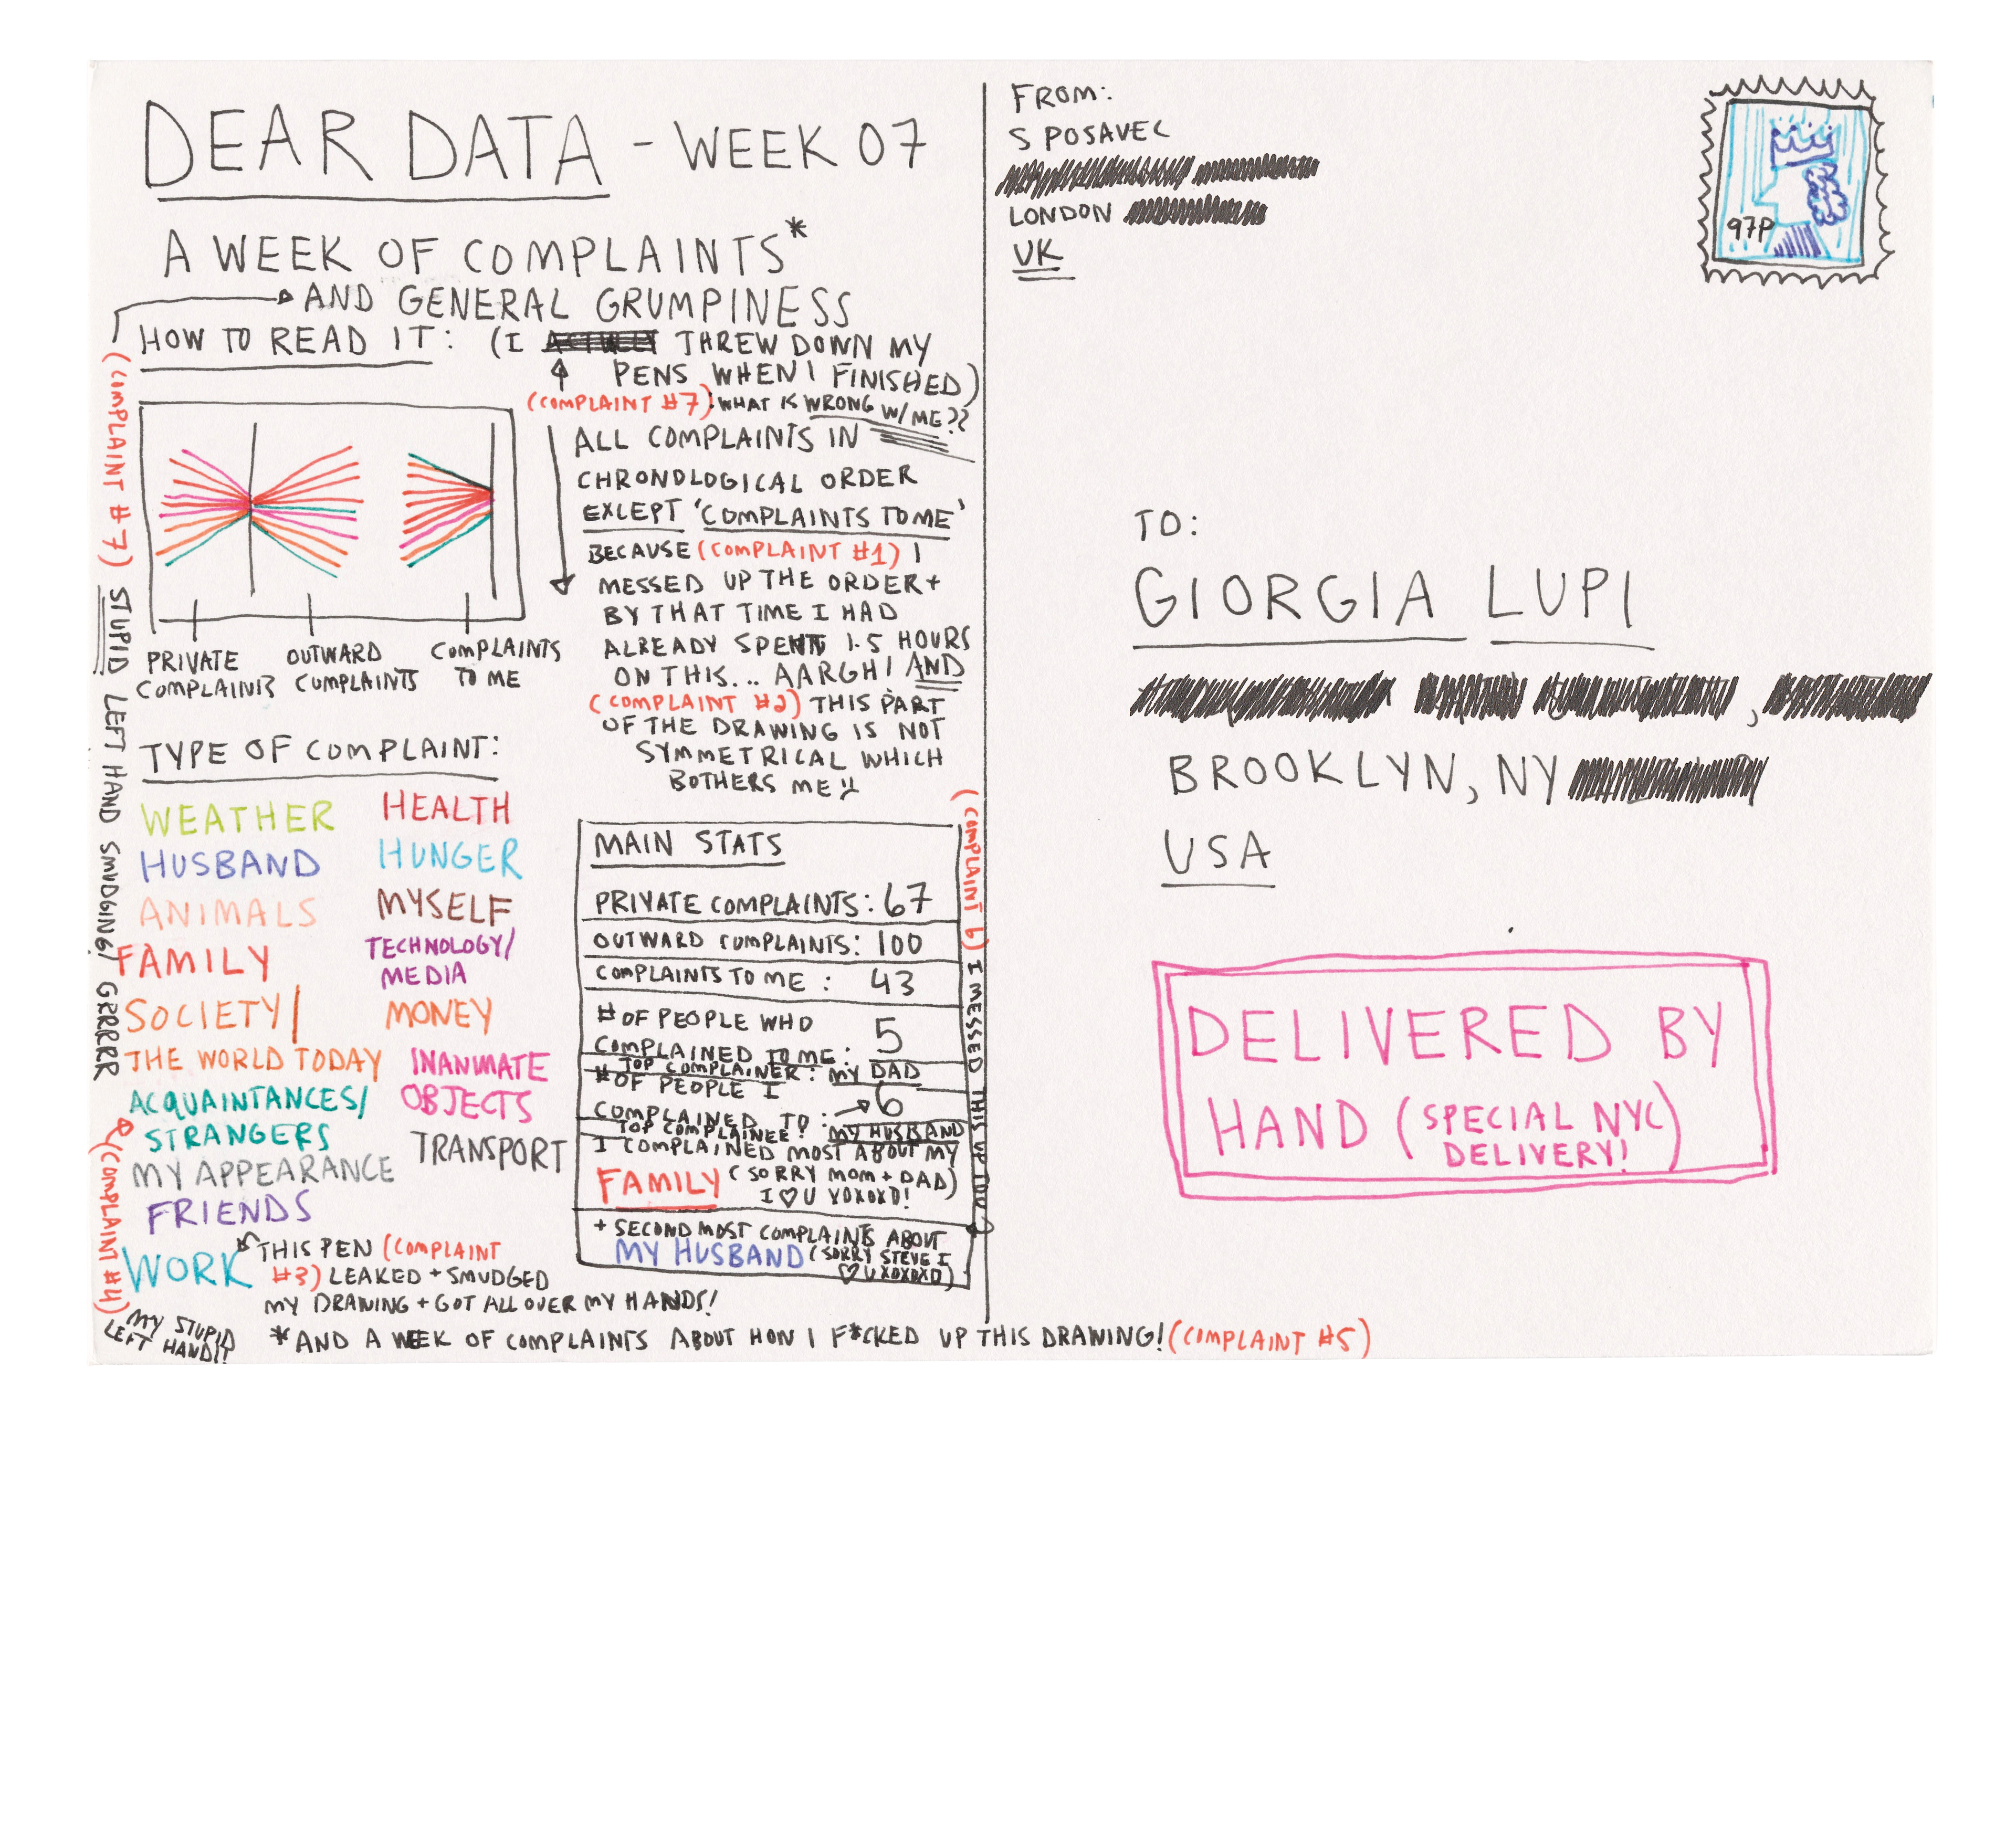 DEAR DATA - WEEK 07
A WEEK OF COMPLAINTS*
AND GENERAL GRUMPINESS
HOW TO READ IT:
(I THREW DOWN MY
PENS WHEN I FINISHED)
(COMPLAINT #7): WHAT IS WRONG W/ME??
(COMPLAINT #7) STUPID LEFT HAND SMUDGING! GRRRRR
PRIVATE
COMPLAINTS
OUTWARD
COMPLAINTS
COMPLAINTS
TO ME
ALL COMPLAINTS IN
CHRONOLOGICAL ORDER
EXCEPT 'COMPLAINTS TO ME'
BECAUSE (COMPLAINT #1) I
MESSED UP THE ORDER +
BY THAT TIME I HAD
ALREADY SPENT 1.5 HOURS
ON THIS... AARGH! AND
(COMPLAINT #2) THIS PART
OF THE DRAWING IS NOT
SYMMETRICAL WHICH
BOTHERS ME!!
TYPE OF COMPLAINT:
WEATHER
HUSBAND
ANIMALS
FAMILY
SOCIETY/
THE WORLD TODAY
ACQUAINTANCES/
STRANGERS
MY APPEARANCE
FRIENDS
WORK
HEALTH
HUNGER
MYSELF
TECHNOLOGY/
MEDIA
MONEY
INANIMATE
OBJECTS
TRANSPORT
THIS PEN (COMPLAINT
#3) LEAKED + SMUDGED
MY DRAWING + GOT ALL OVER MY HANDS!
(COMPLAINT #4)
MY STUPID
LEFT HAND!!
MAIN STATS
PRIVATE COMPLAINTS: 67
OUTWARD COMPLAINTS: 100
COMPLAINTS TO ME: 43
# OF PEOPLE WHO
COMPLAINED TO ME: 5
TOP COMPLAINER: MY DAD
# OF PEOPLE I
COMPLAINED TO: 6
TOP COMPLAINEE: MY HUSBAND
I COMPLAINED MOST ABOUT MY
FAMILY (SORRY MOM + DAD)
I ♡ U XOXOXO!
+ SECOND MOST COMPLAINTS ABOUT
MY HUSBAND (SORRY STEVE I
♡ U XOXOXO)
(COMPLAINT 6) I MESSED THIS UP TOO
*AND A WEEK OF COMPLAINTS ABOUT HOW I F*CKED UP THIS DRAWING! (COMPLAINT #5)
FROM:
S POSAVEC
LONDON
UK
97P
TO:
GIORGIA LUPI
BROOKLYN, NY
USA
DELIVERED BY
HAND (SPECIAL NYC
DELIVERY!)